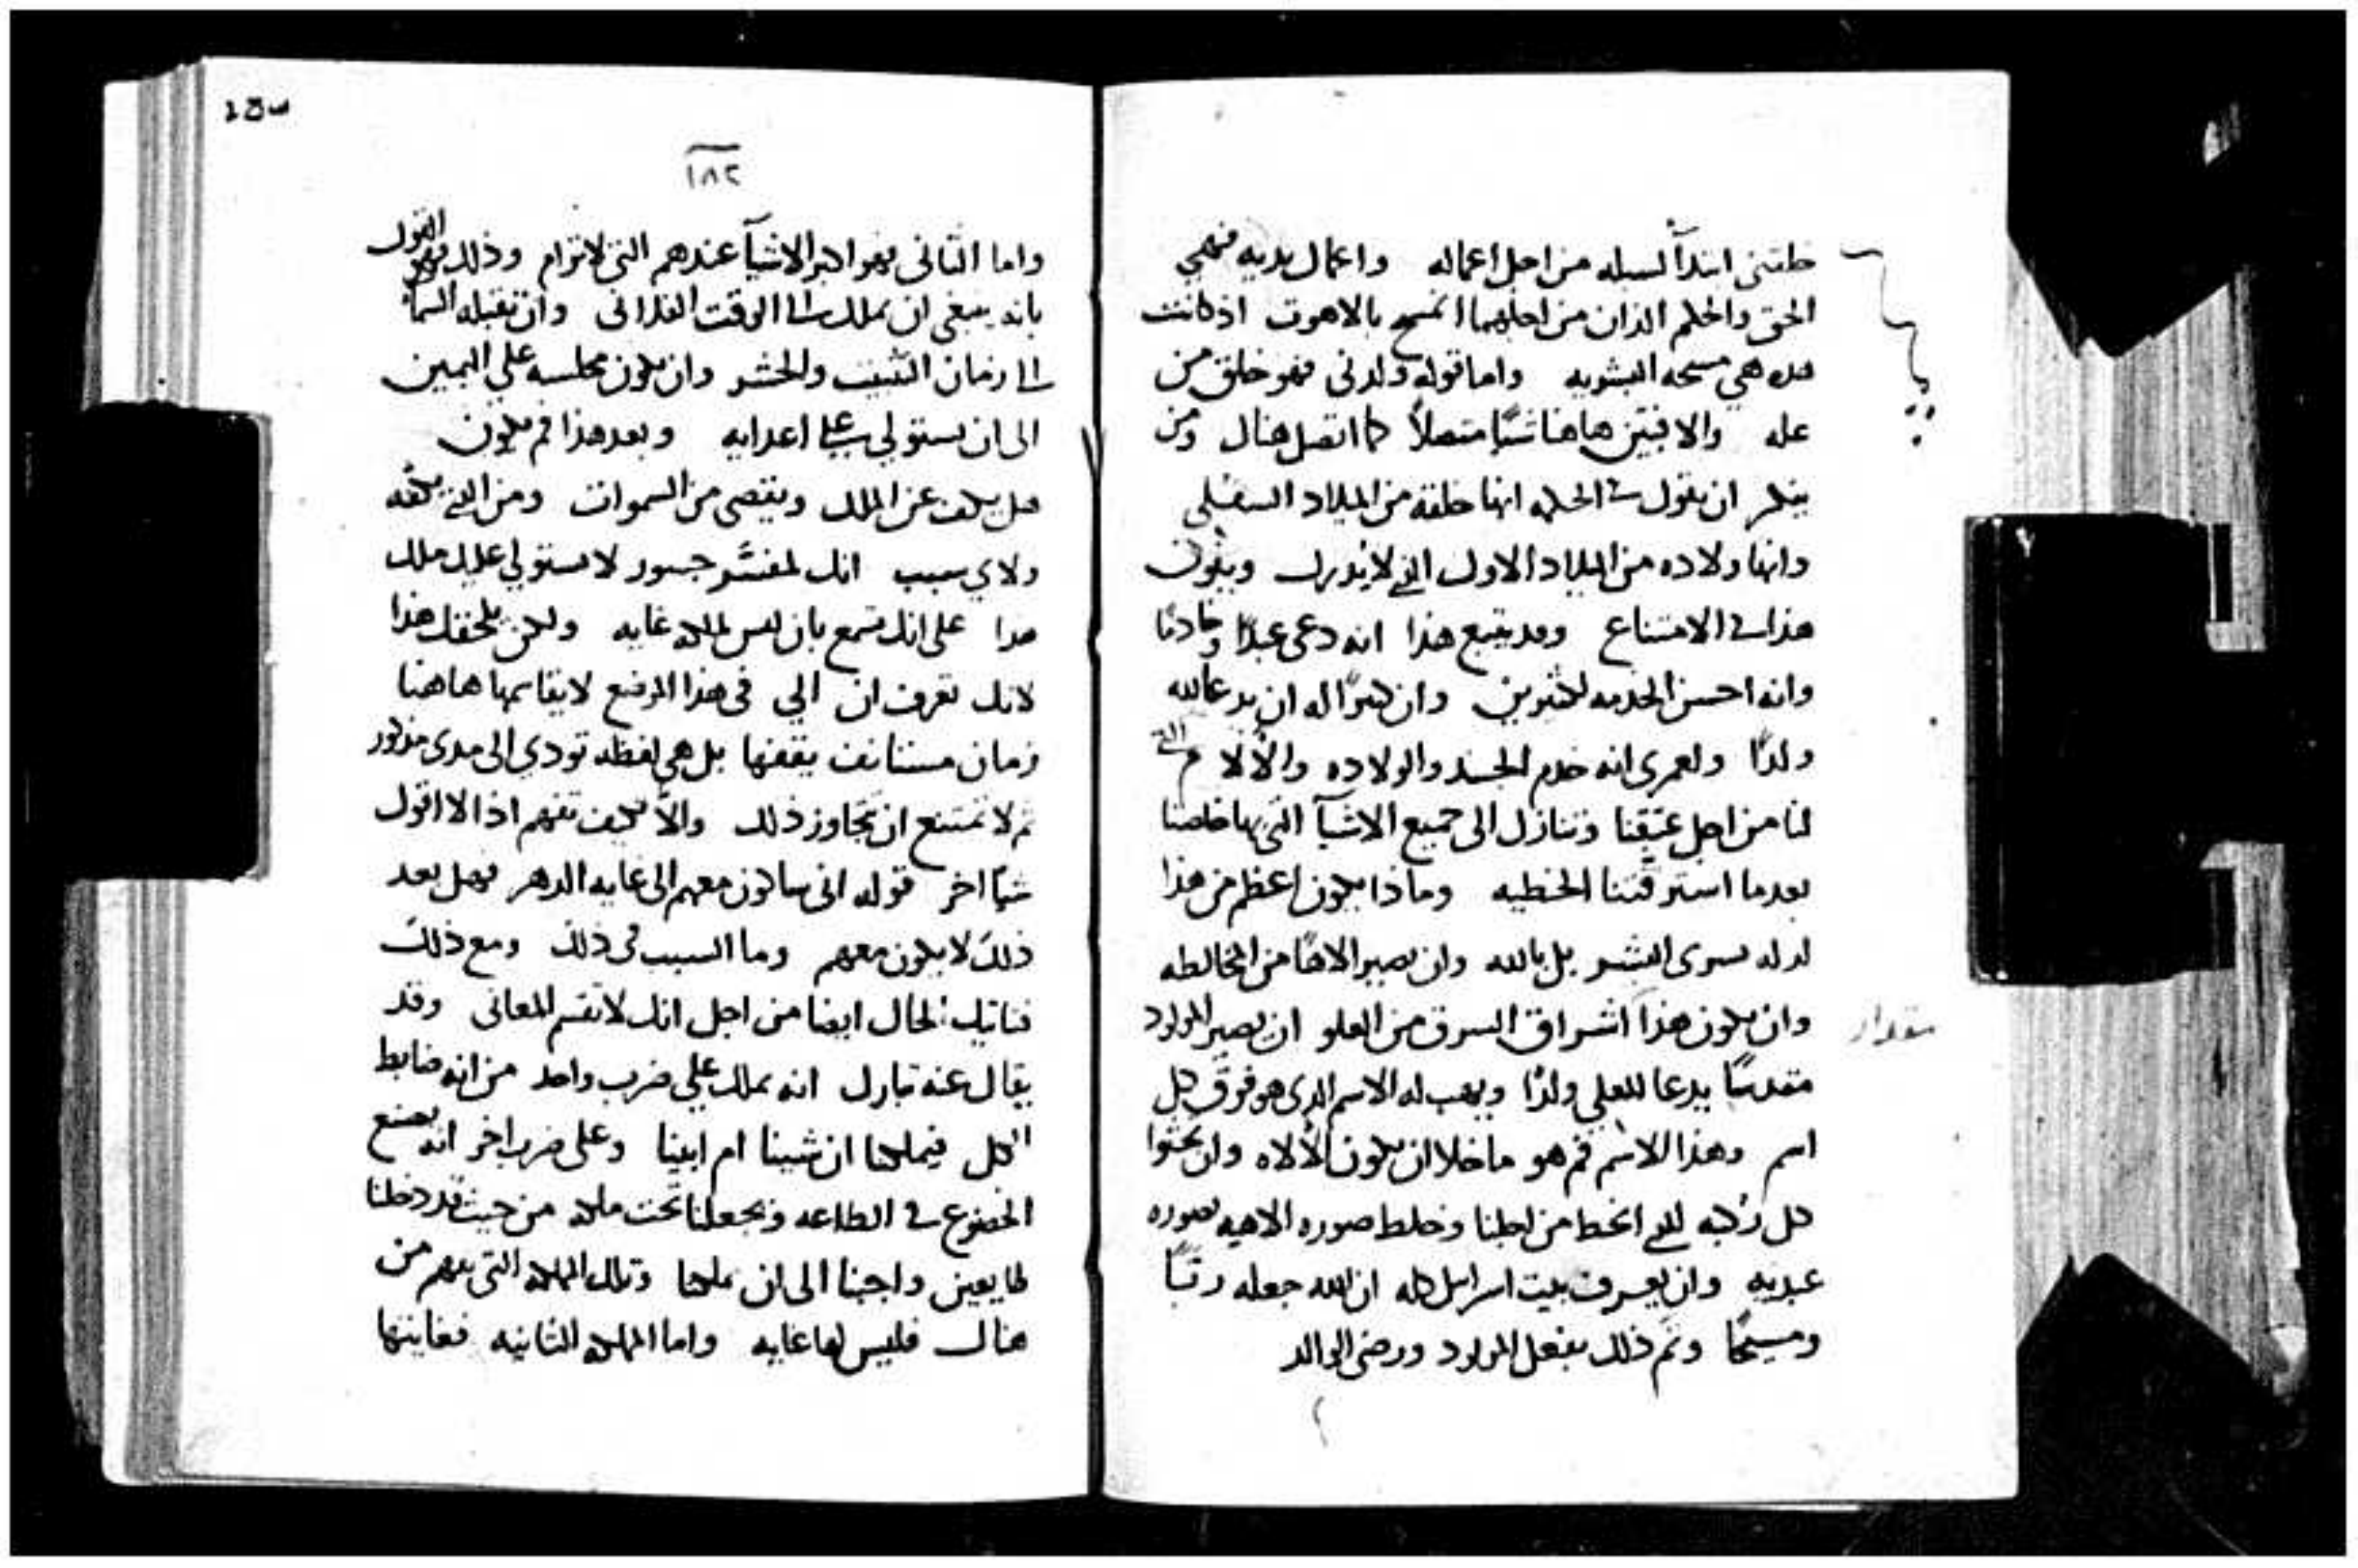 خلقتنى ابتدآ لسبله من اجل اعماله واعمال يديه فهي
الحق والحكم الذان من اجلهما اتمسح بالاهوت اذ كانت
هذه هي مسحه البشريه واما قوله ولدنى فهو خلق من
عله والا فبين هاهنا شيًا متصلاً كما اتصل هناك ومن
ينكر ان يقول فى الحكمه انها خلقه من الميلاد السفلى
وانها ولاده من الميلاد الاول الذى لا يدرك ويكون
هذا فى الامتناع وقد يتبع هذا انه دعى عبدًا وخادمًا
وانه احسن الخدمه لكثيرين وان كبيرًا له ان يدعا لله
ولدًا ولعمرى انه خدم الجسد والولاده والالام التى
لنا من اجل عتقنا وتنازل الى جميع الاشيآ التى بها خلصنا
بعدما استرقتنا الخطيه وماذا يكون اعظم من هذا
سوى البشر بل بالله وان يصير الاهًا من المخالطه
وان يكون هذا اشراق الشرق من العلو ان يصير المولود
مقدسًا يدعا للعلي ولدًا ويهب له الاسم الذى هو فوق كل
اسم وهذا الاسم فم هو ما خلا ان يكون الالاه وان تجثوا
كل ركبه للذى انحط من اجلنا وخلط صوره الاهيه بصوره
عبديه وان يعرف بيت اسرايل كله ان الله جعله ربًا
ومسيحًا وتم ذلك بفعل المولود ورضى الوالد
١٨٢
واما الثانى فهو اكبر الاشيآ عندهم التى لا ترام وذلك فهو القول
بانه ينبغى ان يملك الى الوقت الفلانى وان تقبله السمآ
الى زمان التثبيت والحشر وان يكون مجلسه على اليمين
الى ان يستولي على اعدايه وبعد هذا فم يكون
هل يكف عن الملك ويقصى من السموات ومن الذى يكفه
ولاي سبب انك لمفسّر جسور لا يستولي عليك ملك
هذا على انك تسمع بان ليس لملكه غايه ولكن يلحقك هذا
لانك تعرف ان الي فى هذا الموضع لا يقاسمها هاهنا
زمان مستانف يقفها بل هي لفظه تودي الى مدى مذكور
ثم لا تمتنع ان تجاوز ذلك والا فكيف تفهم اذا لا اقول
شيًا اخر قوله انى ساكون معهم الى غايه الدهر فهل بعد
ذلك لا يكون معهم وما السبب فى ذلك ومع ذلك
الحال ايضا من اجل انك لا تقسم المعانى وقد
يقال عنه تبارك انه يملك على ضرب واحد من انه ضابط
الكل فيملكنا ان شينا ام ابينا وعلى ضرب اخر انه يصنع
الخضوع فى الطاعه ويجعلنا تحت ملكه من حيث قد دخلنا
طايعين واجبنا الى ان يملكنا وتلك المملكه التى تفهم من
هناك فليس لها غايه واما المملكه الثانيه فغايتها